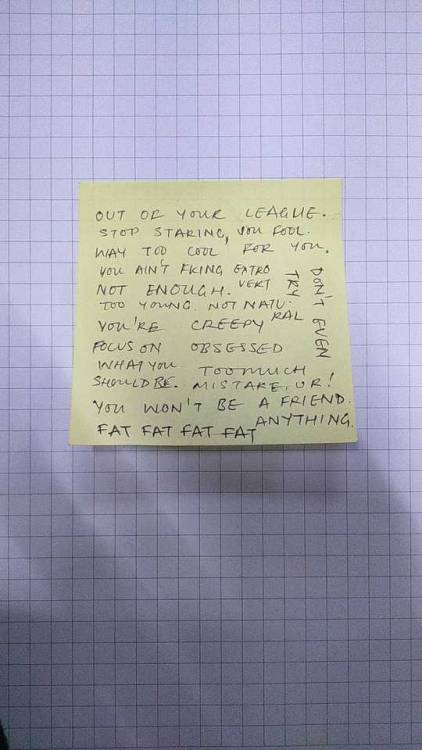 OUT OF YOUR LEAGUE.
STOP STARING, YOU FOOL.
WAY TOO COOL FOR YOU.
YOU AIN'T FKING EXTRO
VERT
NOT ENOUGH.
TOO YOUNG. NOT NATU-
RAL
YOU'RE CREEPY
FOCUS ON OBSESSED
WHAT YOU TOO MUCH
SHOULD BE. MISTAKE, UR!
YOU WON'T BE A FRIEND.
ANYTHING.
FAT FAT FAT FAT
DON'T EVEN
TRY